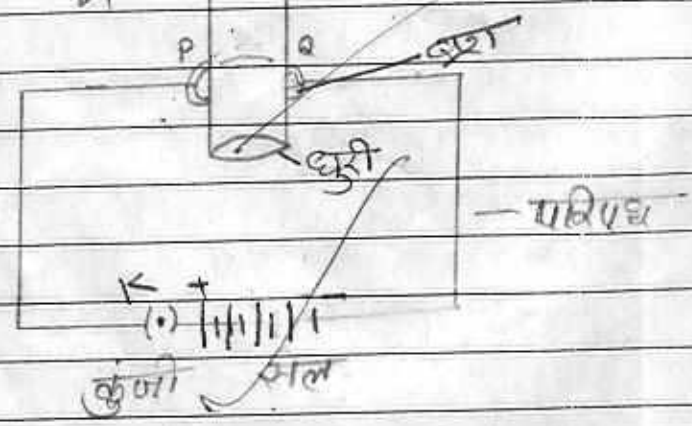 P Q ब्रुश
धुरी
परिपथ
K +
कुंजी सेल